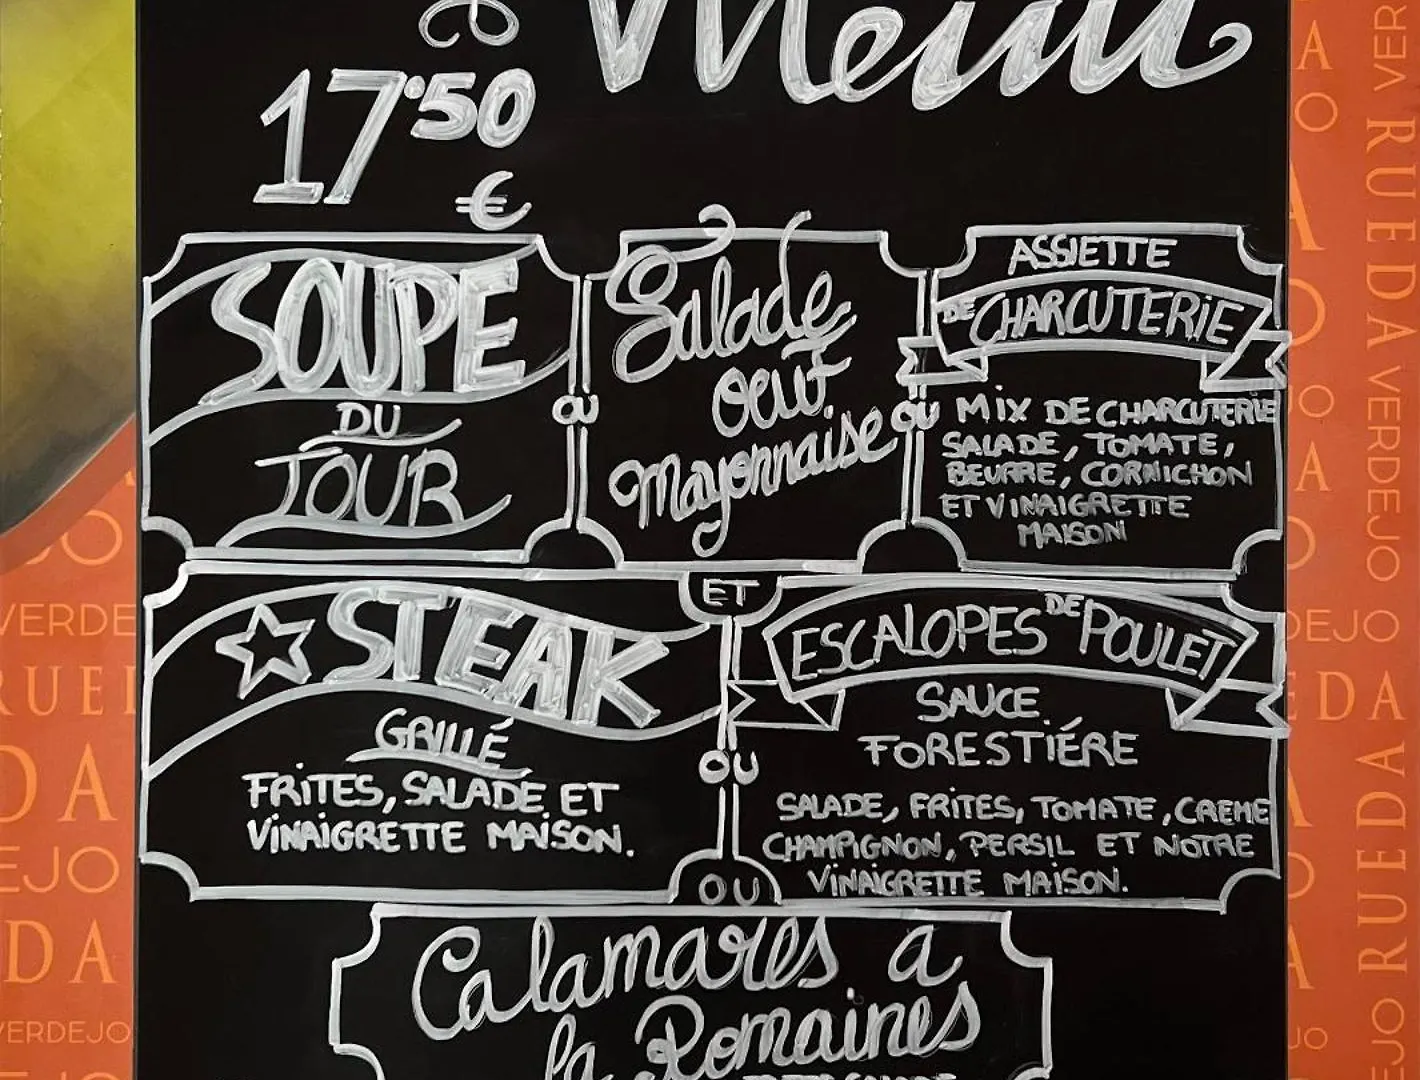 Menu
17.50
€
SOUPE
DU
JOUR
OU
Salade
oeuf
Mayonnaise
OU
ASSIETTE
DE CHARCUTERIE
MIX DE CHARCUTERIE
SALADE, TOMATE,
BEURRE, CORNICHON
ET VINAIGRETTE
MAISON
ET
STEAK
GRILLÉ
FRITES, SALADE ET
VINAIGRETTE MAISON.
OU
ESCALOPES DE POULET
SAUCE
FORESTIÉRE
SALADE, FRITES, TOMATE, CREME
CHAMPIGNON, PERSIL ET NOTRE
VINAIGRETTE MAISON.
OU
Calamares a
la Romaines
VERDEJO
RUEDA
VERDEJO
RUEDA
VERDEJO
RUEDA
VERDEJO
RUEDA